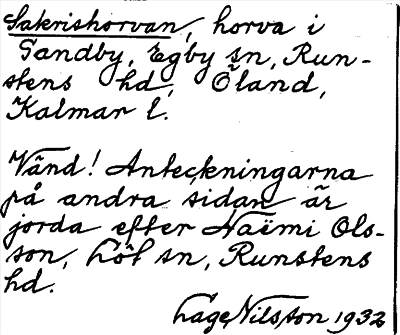 Sakrishorvan, horva i
Sandby, Egby sn, Run-
stens hd, Öland,
Kalmar l.
Vänd! Anteckningarna
på andra sidan är
jorda efter Naëmi Ols-
son, Löt sn, Runstens
hd.
Lage Nilsson 1932